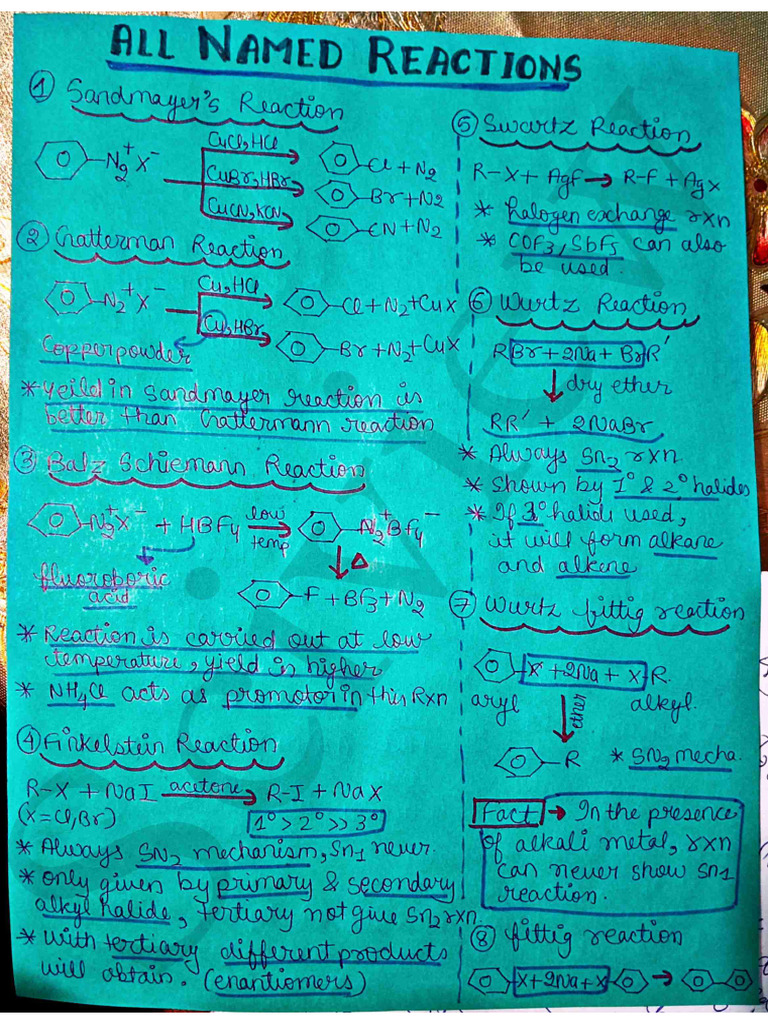 ALL NAMED REACTIONS
① Sandmayer's Reaction
N₂⁺X⁻
CuCl,HCl
Cl + N₂
CuBr,HBr
Br + N₂
CuCN,KCN
CN + N₂
② Gatterman Reaction
N₂⁺X⁻
Cu,HCl
Cl + N₂ + CuX
Cu,HBr
Br + N₂ + CuX
Copper powder
* yeild in Sandmayer reaction is
better than Gattermann reaction
③ Balz Schiemann Reaction
N₂⁺X⁻ + HBF4
low
temp
N₂⁺BF4⁻
Δ
fluoroboric
acid
F + BF3 + N₂
* Reaction is carried out at low
temperature, yield is higher
* NH4Cl acts as promotor in this Rxn
④ Finkelstein Reaction
R-X + NaI acetone→ R-I + NaX
(X = Cl, Br)
1° > 2° >> 3°
* Always SN2 mechanism, Sn1 never.
* only given by primary & secondary
alkyl halide, tertiary not give Sn2 rxn.
* with tertiary different products
will obtain. (enantiomers)
⑤ Swartz Reaction
R-X + AgF → R-F + AgX
* halogen exchange rxn
* COF3/SbF5 can also
be used.
⑥ Wurtz Reaction
RBr + 2Na + BrR'
dry ether
RR' + 2NaBr
* Always Sn2 rxn.
* shown by 1° & 2° halides
* If 3° halide used,
it will form alkane
and alkene
⑦ Wurtz fittig reaction
X + 2Na + X R.
aryl
ether
alkyl.
R
* SN2 mecha.
Fact → In the presence
of alkali metal, rxn
can never show Sn1
reaction.
⑧ fittig reaction
X + 2Na + X →